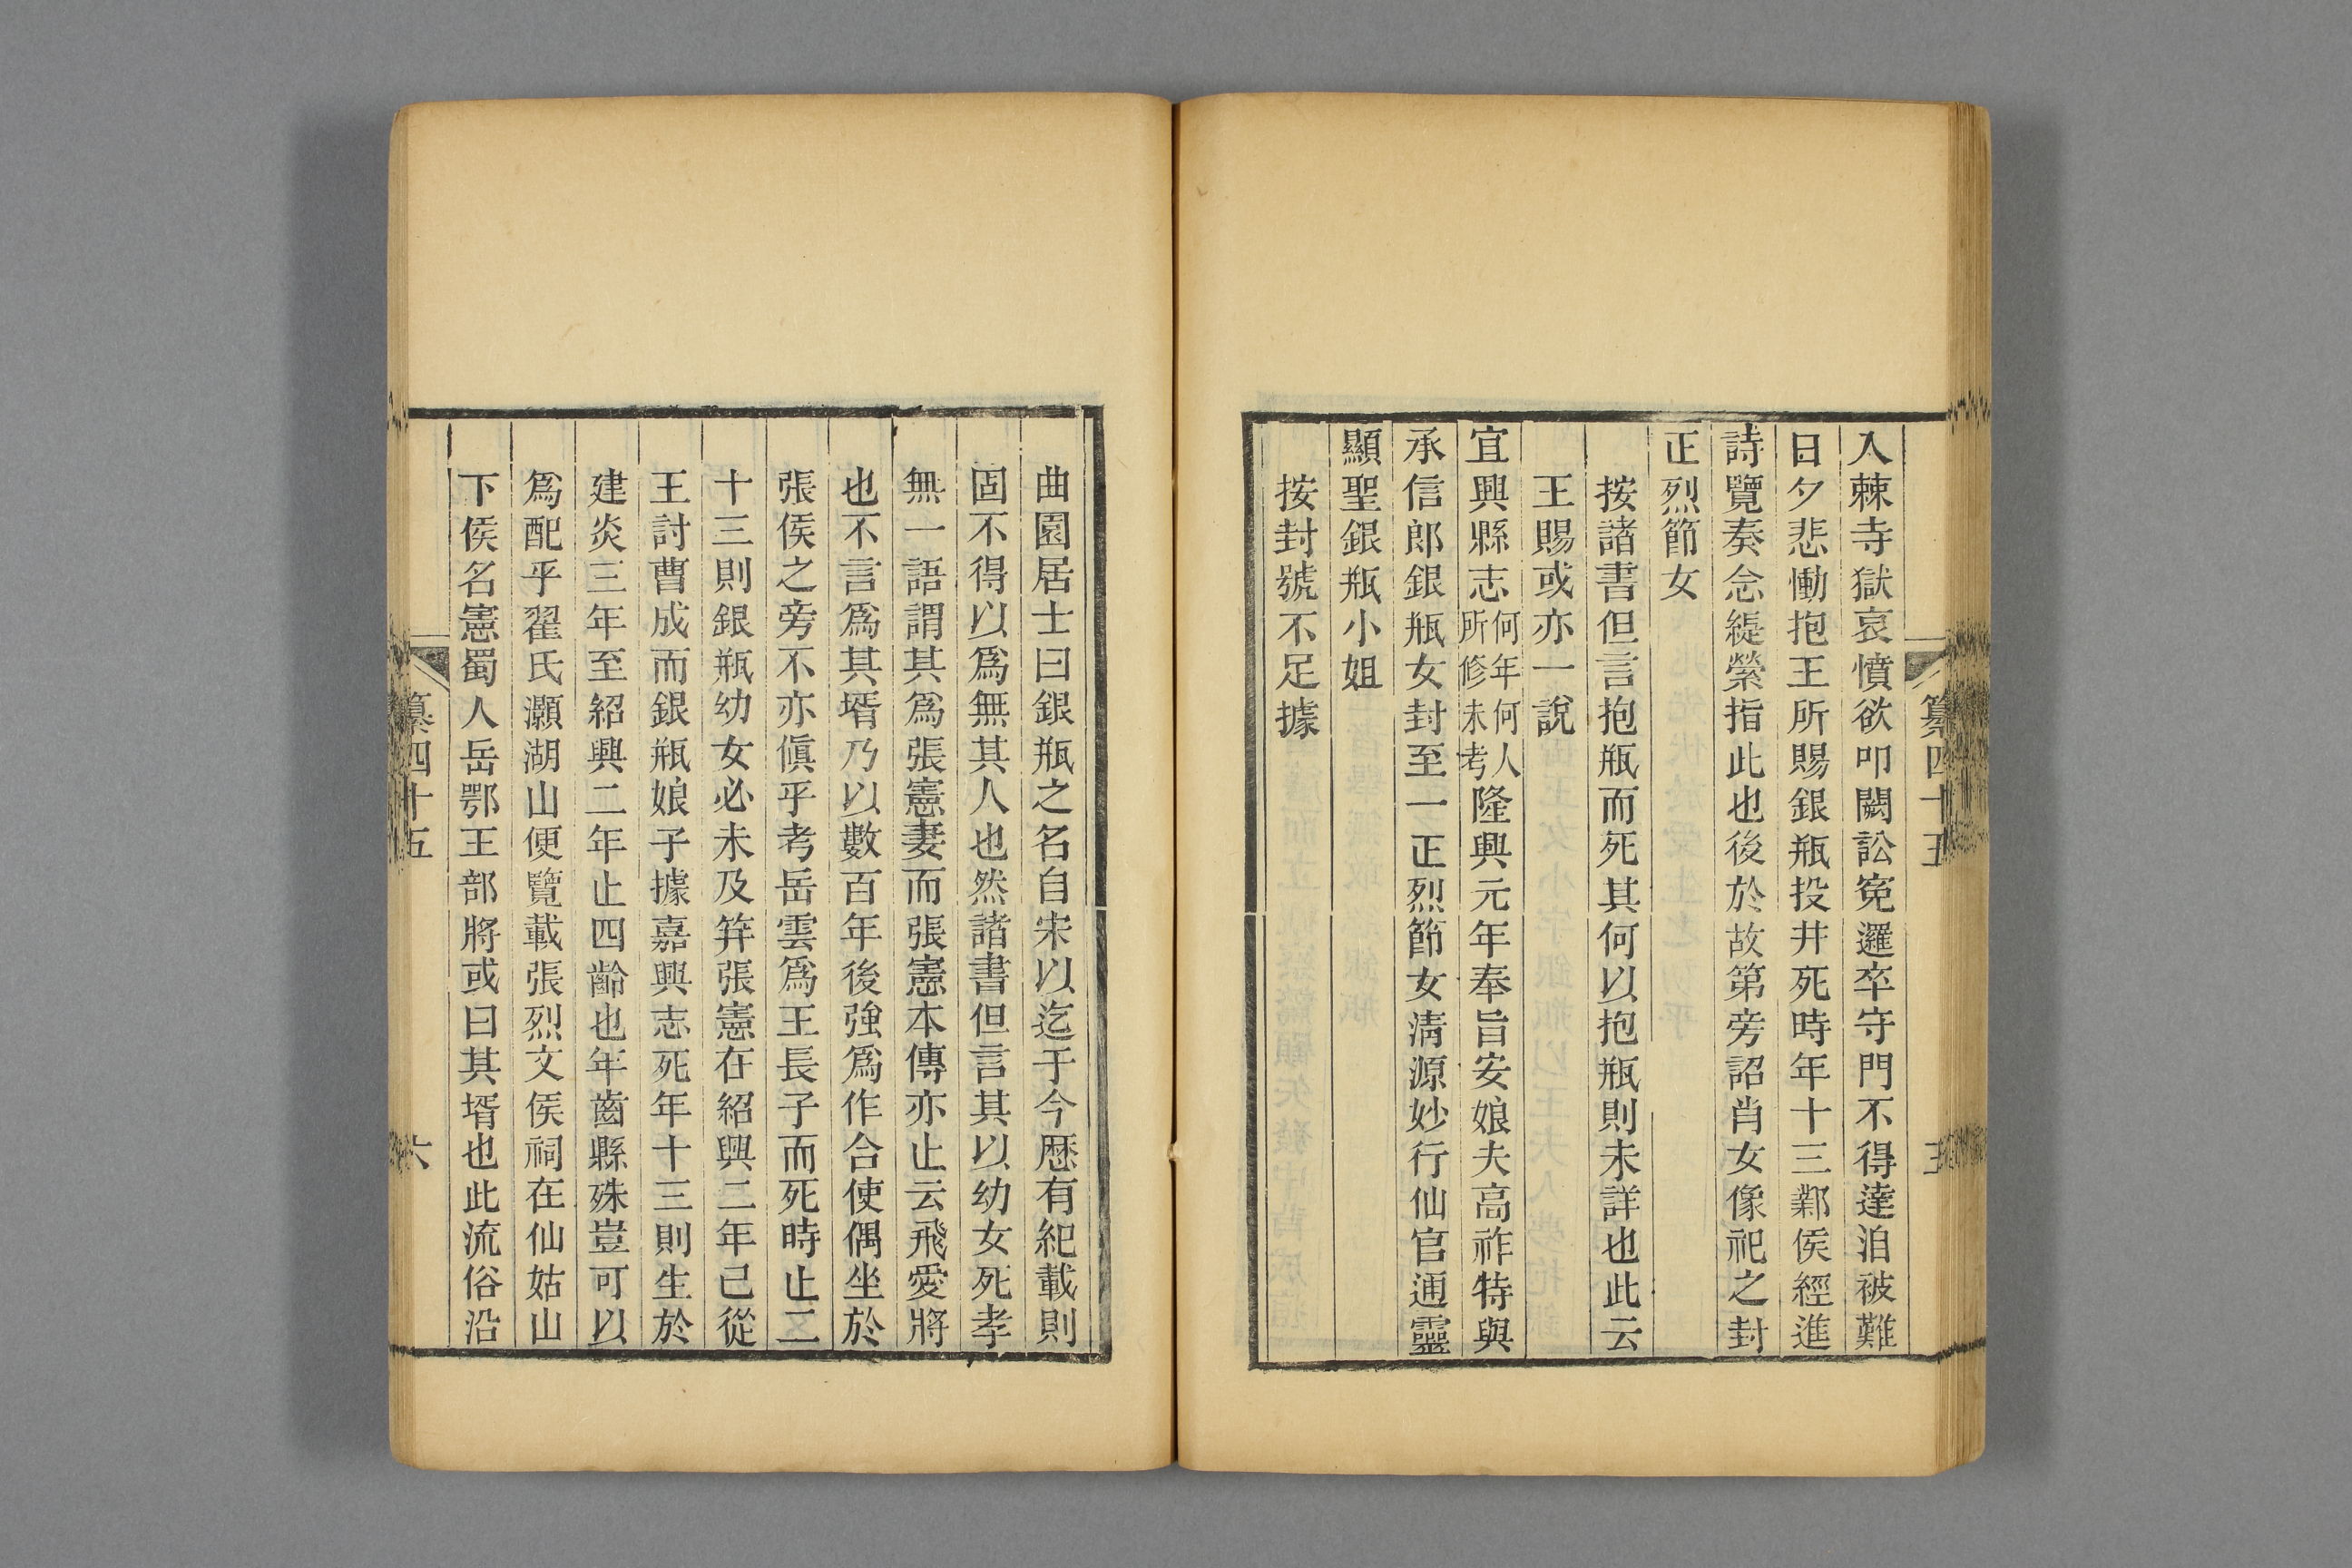 入棘寺獄哀憤欲叩闕訟寃邏卒守門不得達洎被難
日夕悲慟抱王所賜銀瓶投井死時年十三鄴侯經進
詩覽奏念緹縈指此也後於故第旁詔肖女像祀之封
正烈節女
按諸書但言抱瓶而死其何以抱瓶則未詳也此云
王賜或亦一說
宜興縣志何年何人所修未考隆興元年奉旨安娘夫高祚特與
承信郎銀瓶女封至一正烈節女淸源妙行仙官通靈
顯聖銀瓶小姐
按封號不足據
纂四十五
五
曲園居士曰銀瓶之名自宋以迄于今歷有紀載則
固不得以爲無其人也然諸書但言其以幼女死孝
無一語謂其爲張憲妻而張憲本傳亦止云飛愛將
也不言爲其壻乃以數百年後強爲作合使偶坐於
張侯之旁不亦傎乎考岳雲爲王長子而死時止二
十三則銀瓶幼女必未及笄張憲在紹興二年已從
王討曹成而銀瓶娘子據嘉興志死年十三則生於
建炎三年至紹興二年止四齡也年齒縣殊豈可以
爲配乎翟氏灝湖山便覽載張烈文侯祠在仙姑山
下侯名憲蜀人岳鄂王部將或曰其壻也此流俗沿
纂四十五
六